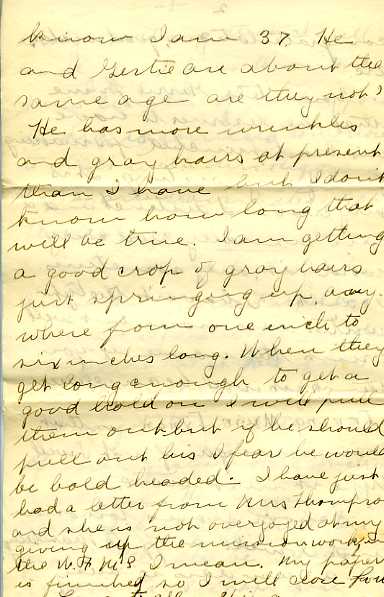 know I am 37. He
and Gertie are about the
same age are they not?
He has more wrinkles
and gray hairs at present
than I have but I don't
know how long that
will be true. I am getting
a good crop of gray hairs
just springing up, any-
where from one inch to
six inches long. When they
get long enough to get a
good hold on I will pull
them out but if he should
pull out his I fear he would
be bald headed. I have just
had a letter from Mrs Thompson
and she is not overjoyed at my
giving up the mission work in
the W.F.M.S I mean. My paper
is finished so I will close for